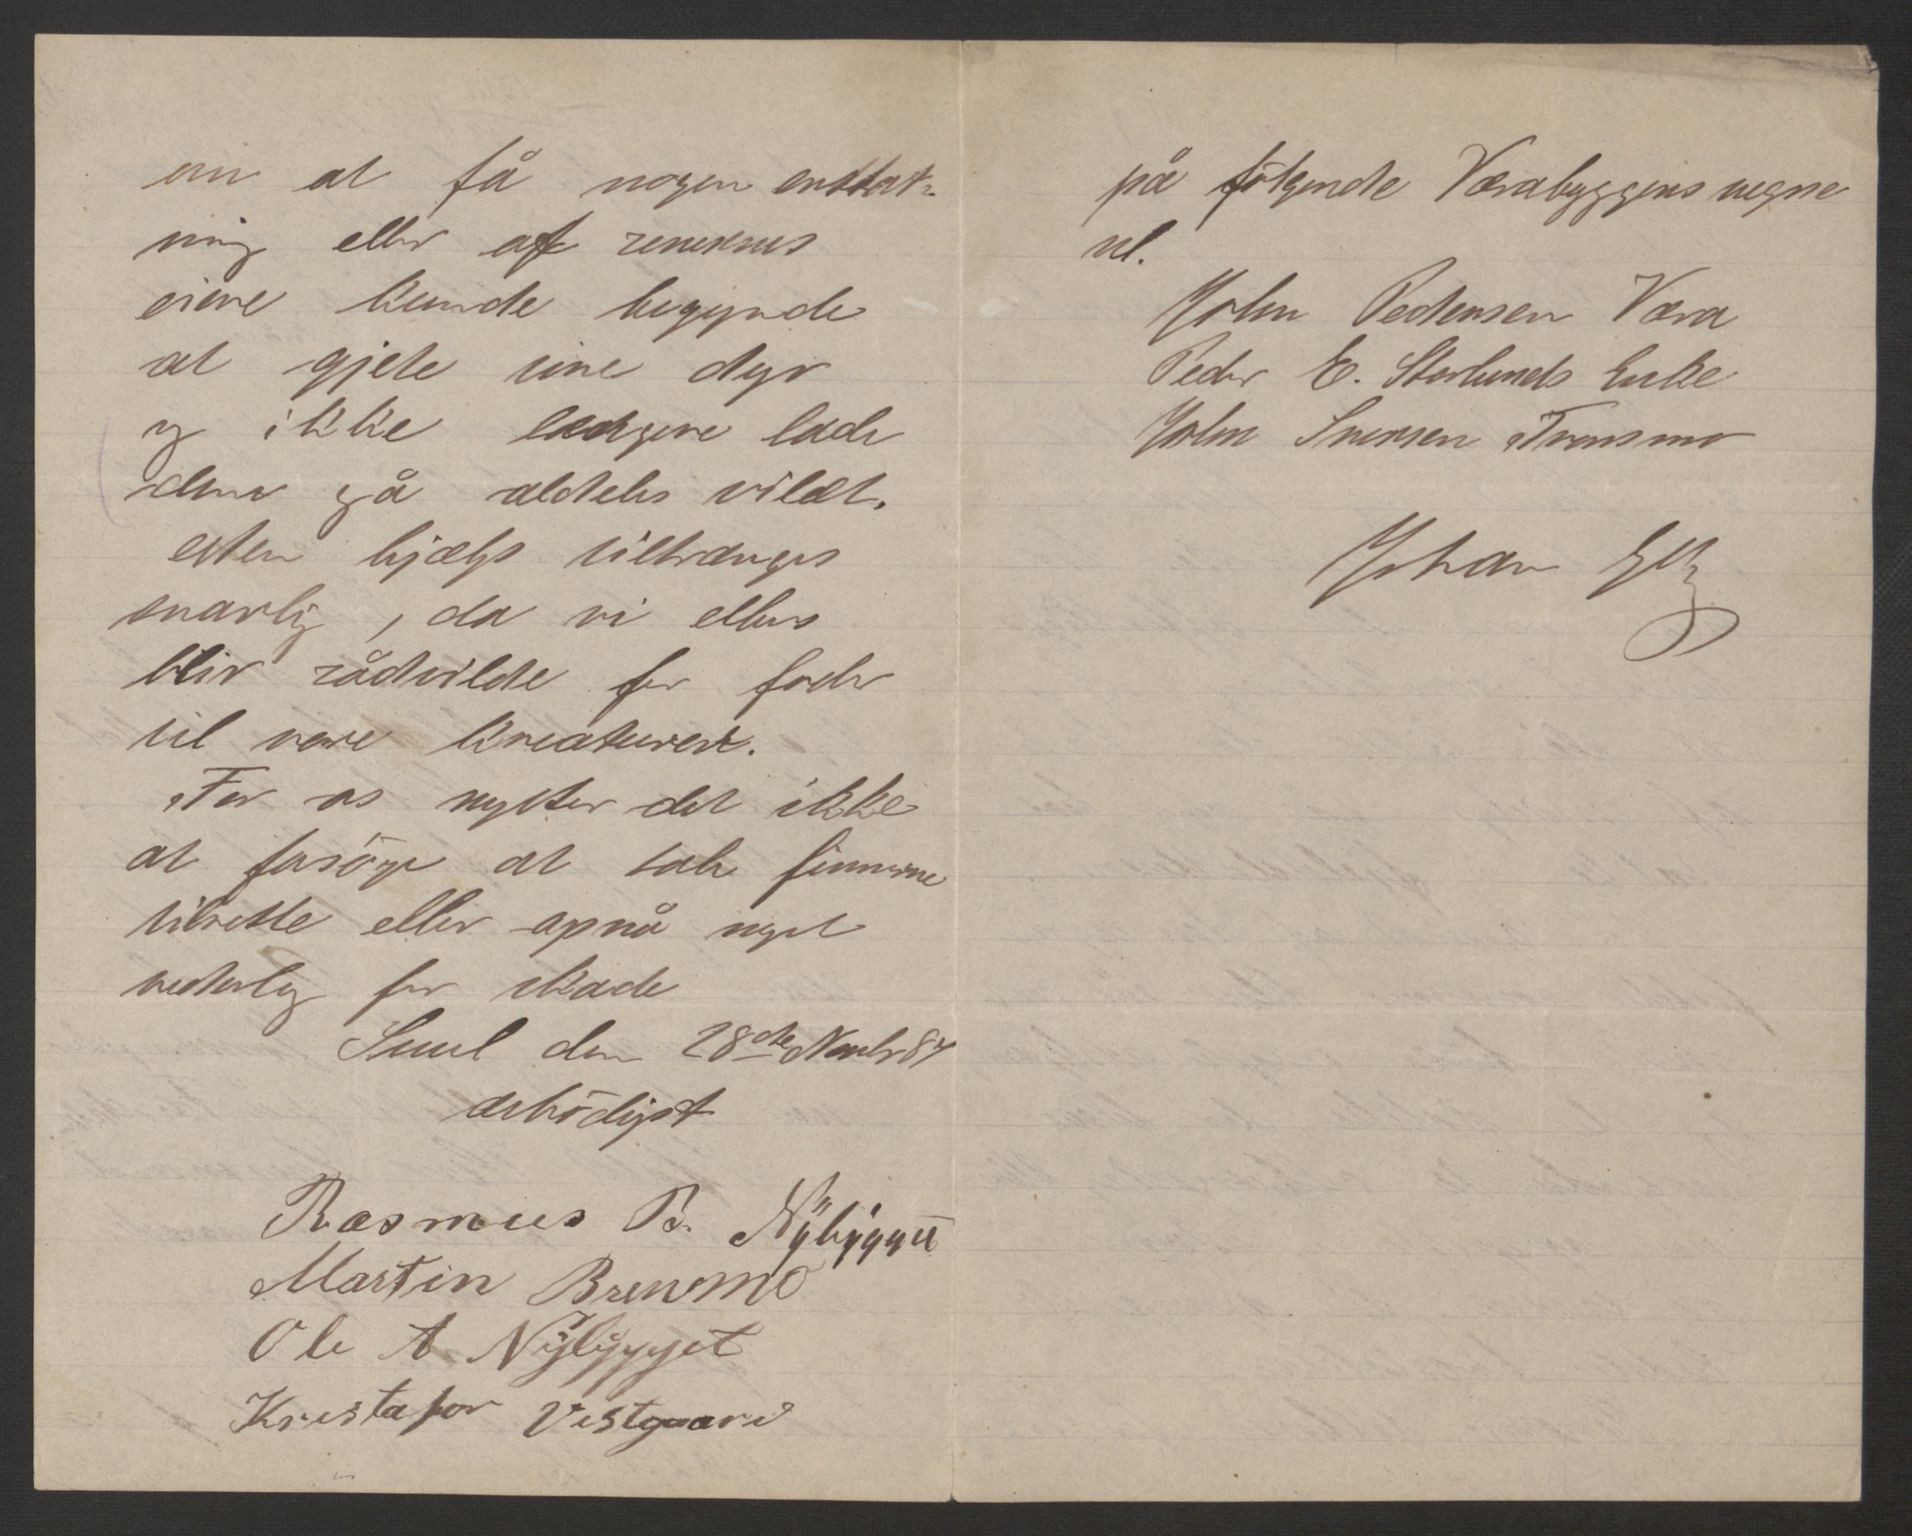 om at få nogen ersttat-
ning eller at renernes
eiere kunde begynde
at gjete sine dyr
og ikke længere lade
dem gå aldeles vildt.
eten hjælp tiltrænges
snarlig, da vi ellers
blir rådvilde for foder
til vore kreaturer.
For os nytter det ikke
at forsöge at tale finnerne
tilrette eller opnå noget
vederlag for skade
Suul den 28de Novbr 87
ærbödigst
Rasmus B. Nÿbÿgget
Martin Brenmo
Ole A Nÿbÿgget
Kristafor Vestgaard
på fölgende Værabyggens vegne
nl.
John Pedersen Væra
Peder E. Storlunds Enke
John Svensen Tronsmo
Johan Getz